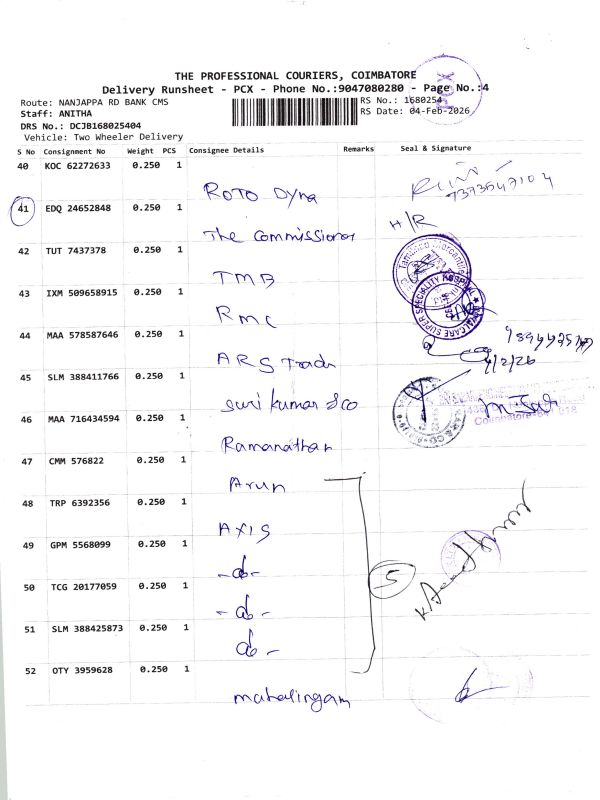 THE PROFESSIONAL COURIERS, COIMBATORE
Delivery Runsheet - PCX - Phone No.:9047080280 - Page No.:4
Route: NANJAPPA RD BANK CMS
RS No.: 1680254
Staff: ANITHA
RS Date: 04-Feb-2026
DRS No.: DCJB168025404
Vehicle: Two Wheeler Delivery
S No Consignment No Weight PCS Consignee Details Remarks Seal & Signature
40 KOC 62272633 0.250 1
Roto Dyna
41 EDQ 24652848 0.250 1
H/R
The Commissioner
42 TUT 7437378 0.250 1
TMB
43 IXM 509658915 0.250 1
RMC
44 MAA 578587646 0.250 1
ARS Trade
4/2/26
45 SLM 388411766 0.250 1
Suri kumar & co
46 MAA 716434594 0.250 1
Ramanathan
47 CMM 576822 0.250 1
Arun
48 TRP 6392356 0.250 1
AXIS
49 GPM 5568099 0.250 1
-do-
5
50 TCG 20177059 0.250 1
-do-
51 SLM 388425873 0.250 1
do-
52 OTY 3959628 0.250 1
mahalingam